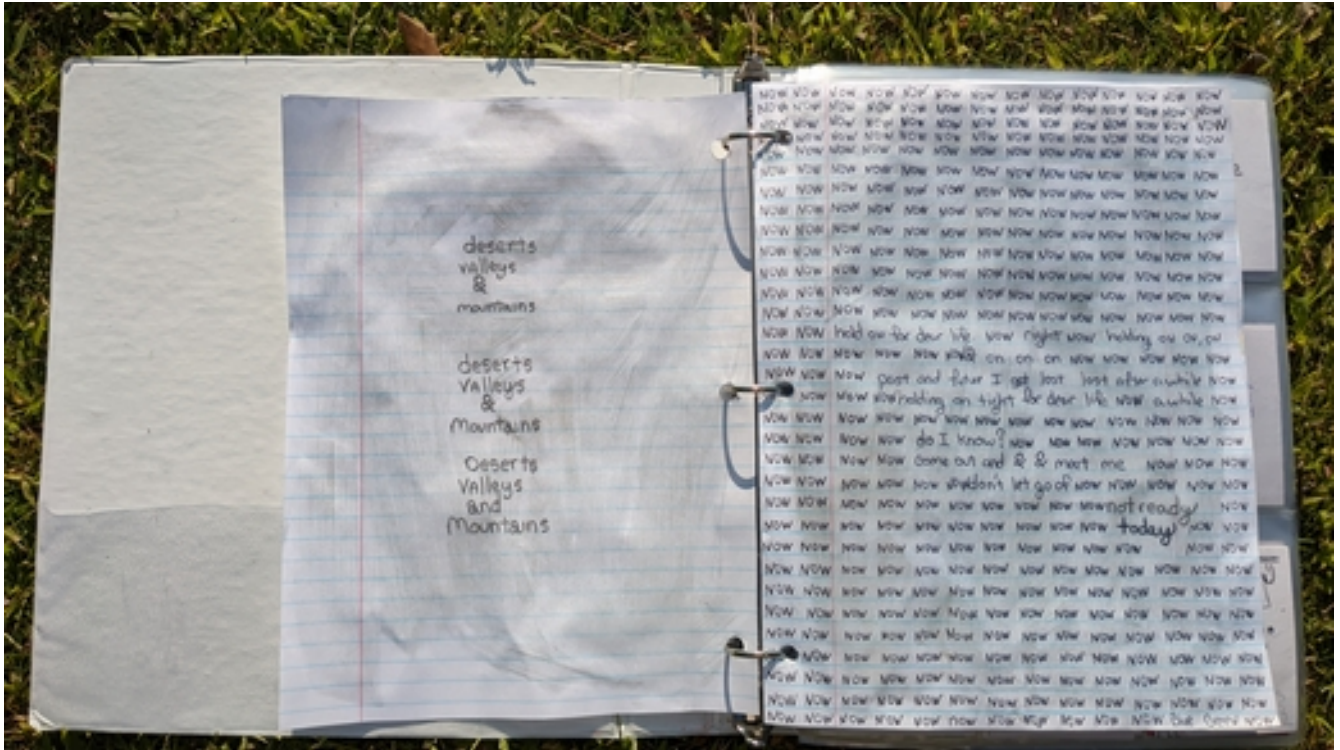 deserts
valleys
&
mountains
deserts
valleys
&
Mountains
Deserts
Valleys
and
Mountains
NOW NOW NOW NOW NOW NOW NOW NOW NOW NOW NOW NOW NOW
NOW NOW NOW NOW NOW NOW NOW NOW NOW NOW NOW NOW NOW
NOW NOW NOW NOW NOW NOW NOW NOW NOW NOW NOW NOW
NOW NOW NOW NOW NOW NOW NOW NOW NOW NOW NOW NOW
NOW NOW NOW NOW NOW NOW NOW NOW NOW NOW NOW NOW
NOW NOW NOW NOW NOW NOW NOW NOW NOW NOW NOW NOW NOW
NOW NOW NOW NOW NOW NOW NOW NOW NOW NOW NOW NOW NOW
NOW NOW NOW NOW NOW NOW NOW NOW NOW NOW NOW NOW NOW
NOW NOW NOW NOW NOW NOW NOW NOW NOW NOW NOW NOW NOW
NOW NOW NOW NOW NOW NOW NOW NOW NOW NOW NOW NOW NOW
NOW NOW NOW NOW NOW NOW NOW NOW NOW NOW NOW NOW NOW
NOW NOW NOW NOW NOW NOW NOW NOW NOW NOW NOW NOW NOW
NOW NOW NOW NOW NOW NOW NOW NOW NOW NOW NOW NOW NOW
NOW NOW hold on for dear life NOW right NOW holding on on, on
NOW NOW NOW NOW NOW on on on NOW NOW NOW NOW NOW
NOW NOW NOW past and futur I get lost lost after awhile NOW
NOW NOW NOW holding on tight for dear life NOW awhile NOW
NOW NOW NOW NOW NOW NOW NOW NOW NOW NOW NOW NOW NOW
NOW NOW NOW NOW do I know? NOW NOW NOW NOW NOW NOW NOW
NOW NOW NOW NOW come out and & & meet me NOW NOW NOW
NOW NOW NOW NOW NOW don't let go of NOW NOW NOW NOW NOW
NOW NOW NOW NOW NOW NOW NOW NOW NOW not ready NOW
NOW NOW NOW NOW NOW NOW NOW NOW NOW NOW today! NOW NOW
NOW NOW NOW NOW NOW NOW NOW NOW NOW NOW NOW NOW NOW
NOW NOW NOW NOW NOW NOW NOW NOW NOW NOW NOW NOW NOW NOW
NOW NOW NOW NOW NOW NOW NOW NOW NOW NOW NOW NOW NOW NOW
NOW NOW NOW NOW NOW NOW NOW NOW NOW NOW NOW NOW NOW NOW
NOW NOW NOW NOW NOW NOW NOW NOW NOW NOW NOW NOW NOW NOW
NOW NOW NOW NOW NOW NOW NOW NOW NOW NOW NOW NOW NOW
NOW NOW NOW NOW NOW NOW NOW NOW NOW NOW NOW NOW NOW NOW
NOW NOW NOW NOW NOW NOW NOW NOW NOW NOW NOW NOW NOW NOW
NOW NOW NOW NOW NOW NOW NOW NOW NOW NOW NOW NOW